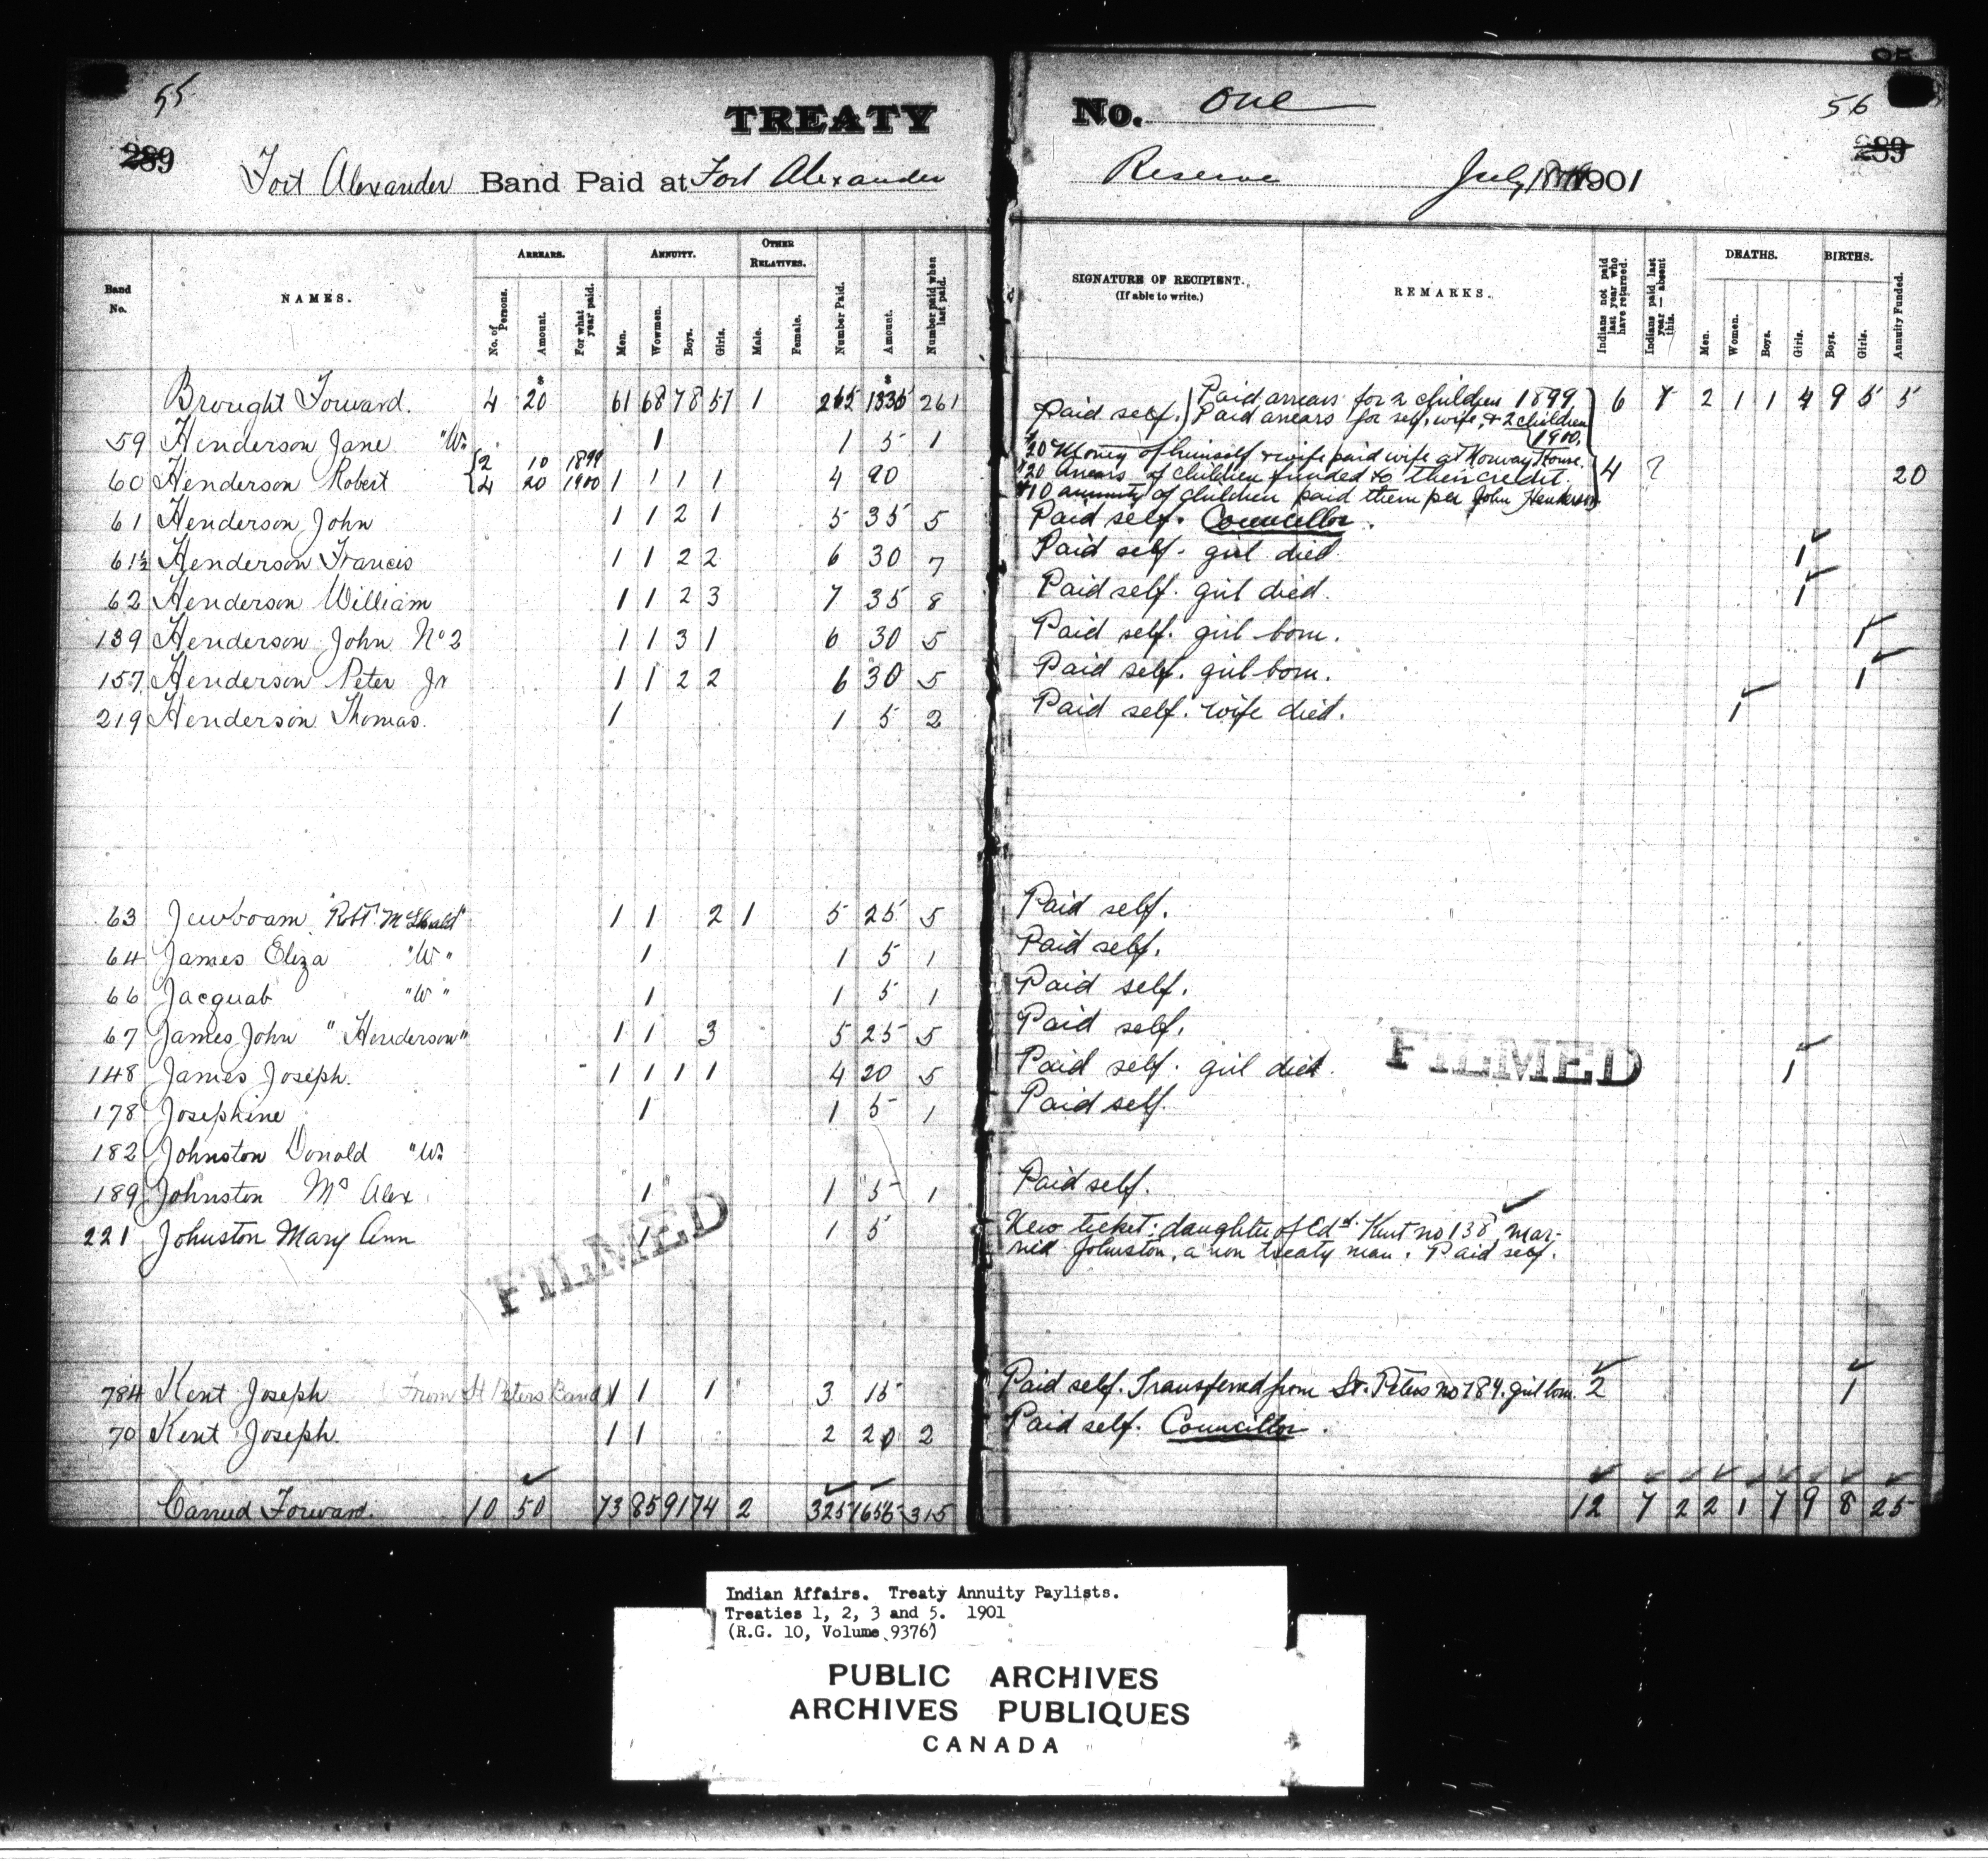 55
TREATY No. One
56
289
289
Fort Alexander Band Paid at Fort Alexander Reserve July 1901
Band No.
NAMES.
ARREARS.
No. of Persons.
Amount.
For what year paid.
ANNUITY.
Men.
Wowmen.
Boys.
Girls.
OTHER RELATIVES.
Male.
Female.
Number Paid.
Amount.
Number paid when last paid.
SIGNATURE OF RECIPIENT.
(If able to write.)
REMARKS.
Indians not paid last year who have returned.
Indians paid last year — absent this.
DEATHS.
Men.
Women.
Boys.
Girls.
BIRTHS.
Boys.
Girls.
Annuity Funded.
Brought Forward. 4 20 61 68 78 57 1 265 1335 261 6 7 2 1 1 4 9 5 5
Paid self. Paid arrears for 2 children 1899
Paid arrears for self, wife, & 2 children 1900.
59 Henderson Jane "W" 1 1 5 1
60 Henderson Robert 2 10 1899
4 20 1900 1 1 1 1 4 90 4 ? 20
$20 Money of himself & wife paid wife at Norway House.
$20 Arrears of children funded to their credit.
$10 annuity of children paid them per John Henderson
61 Henderson John 1 1 2 1 5 35 5 Paid self. Councillor.
61½ Henderson Francis 1 1 2 2 6 30 7 Paid self. girl died 1
62 Henderson William 1 1 2 3 7 35 8 Paid self. girl died. 1
139 Henderson John No 2 1 1 3 1 6 30 5 Paid self. girl born. 1
157 Henderson Peter Jr 1 1 2 2 6 30 5 Paid self. girl born. 1
219 Henderson Thomas. 1 1 5 2 Paid self. wife died. 1
63 1 1 2 1 5 25 5 Paid self.
64 James Eliza "W" 1 1 5 1 Paid self.
66 Jacquab "W" 1 1 5 1 Paid self.
67 James John "Henderson" 1 1 3 5 25 5 Paid self.
148 James Joseph. 1 1 1 1 4 20 5 Paid self. girl died. 1
FILMED
178 Josephine 1 1 5 1 Paid self.
182 Johnston Donald "W"
189 Johnston Mrs Alex 1 1 5 1 Paid self.
221 Johnston Mary Ann 1 1 5 New ticket: daughter of Edd. Kent no 138, mar-
ried Johnston, a non treaty man. Paid self.
FILMED
784 Kent Joseph (From St Peters Band) 1 1 1 3 15 Paid self. Transferred from St. Peters no 784. girl born. 2 1
70 Kent Joseph. 1 1 2 20 2 Paid self. Councillor.
Carried Forward. 10 50 73 85 91 74 2 325 1655 315 12 7 2 2 1 7 9 8 25
Indian Affairs. Treaty Annuity Paylists.
Treaties 1, 2, 3 and 5. 1901
(R.G. 10, Volume 9376)
PUBLIC ARCHIVES
ARCHIVES PUBLIQUES
CANADA